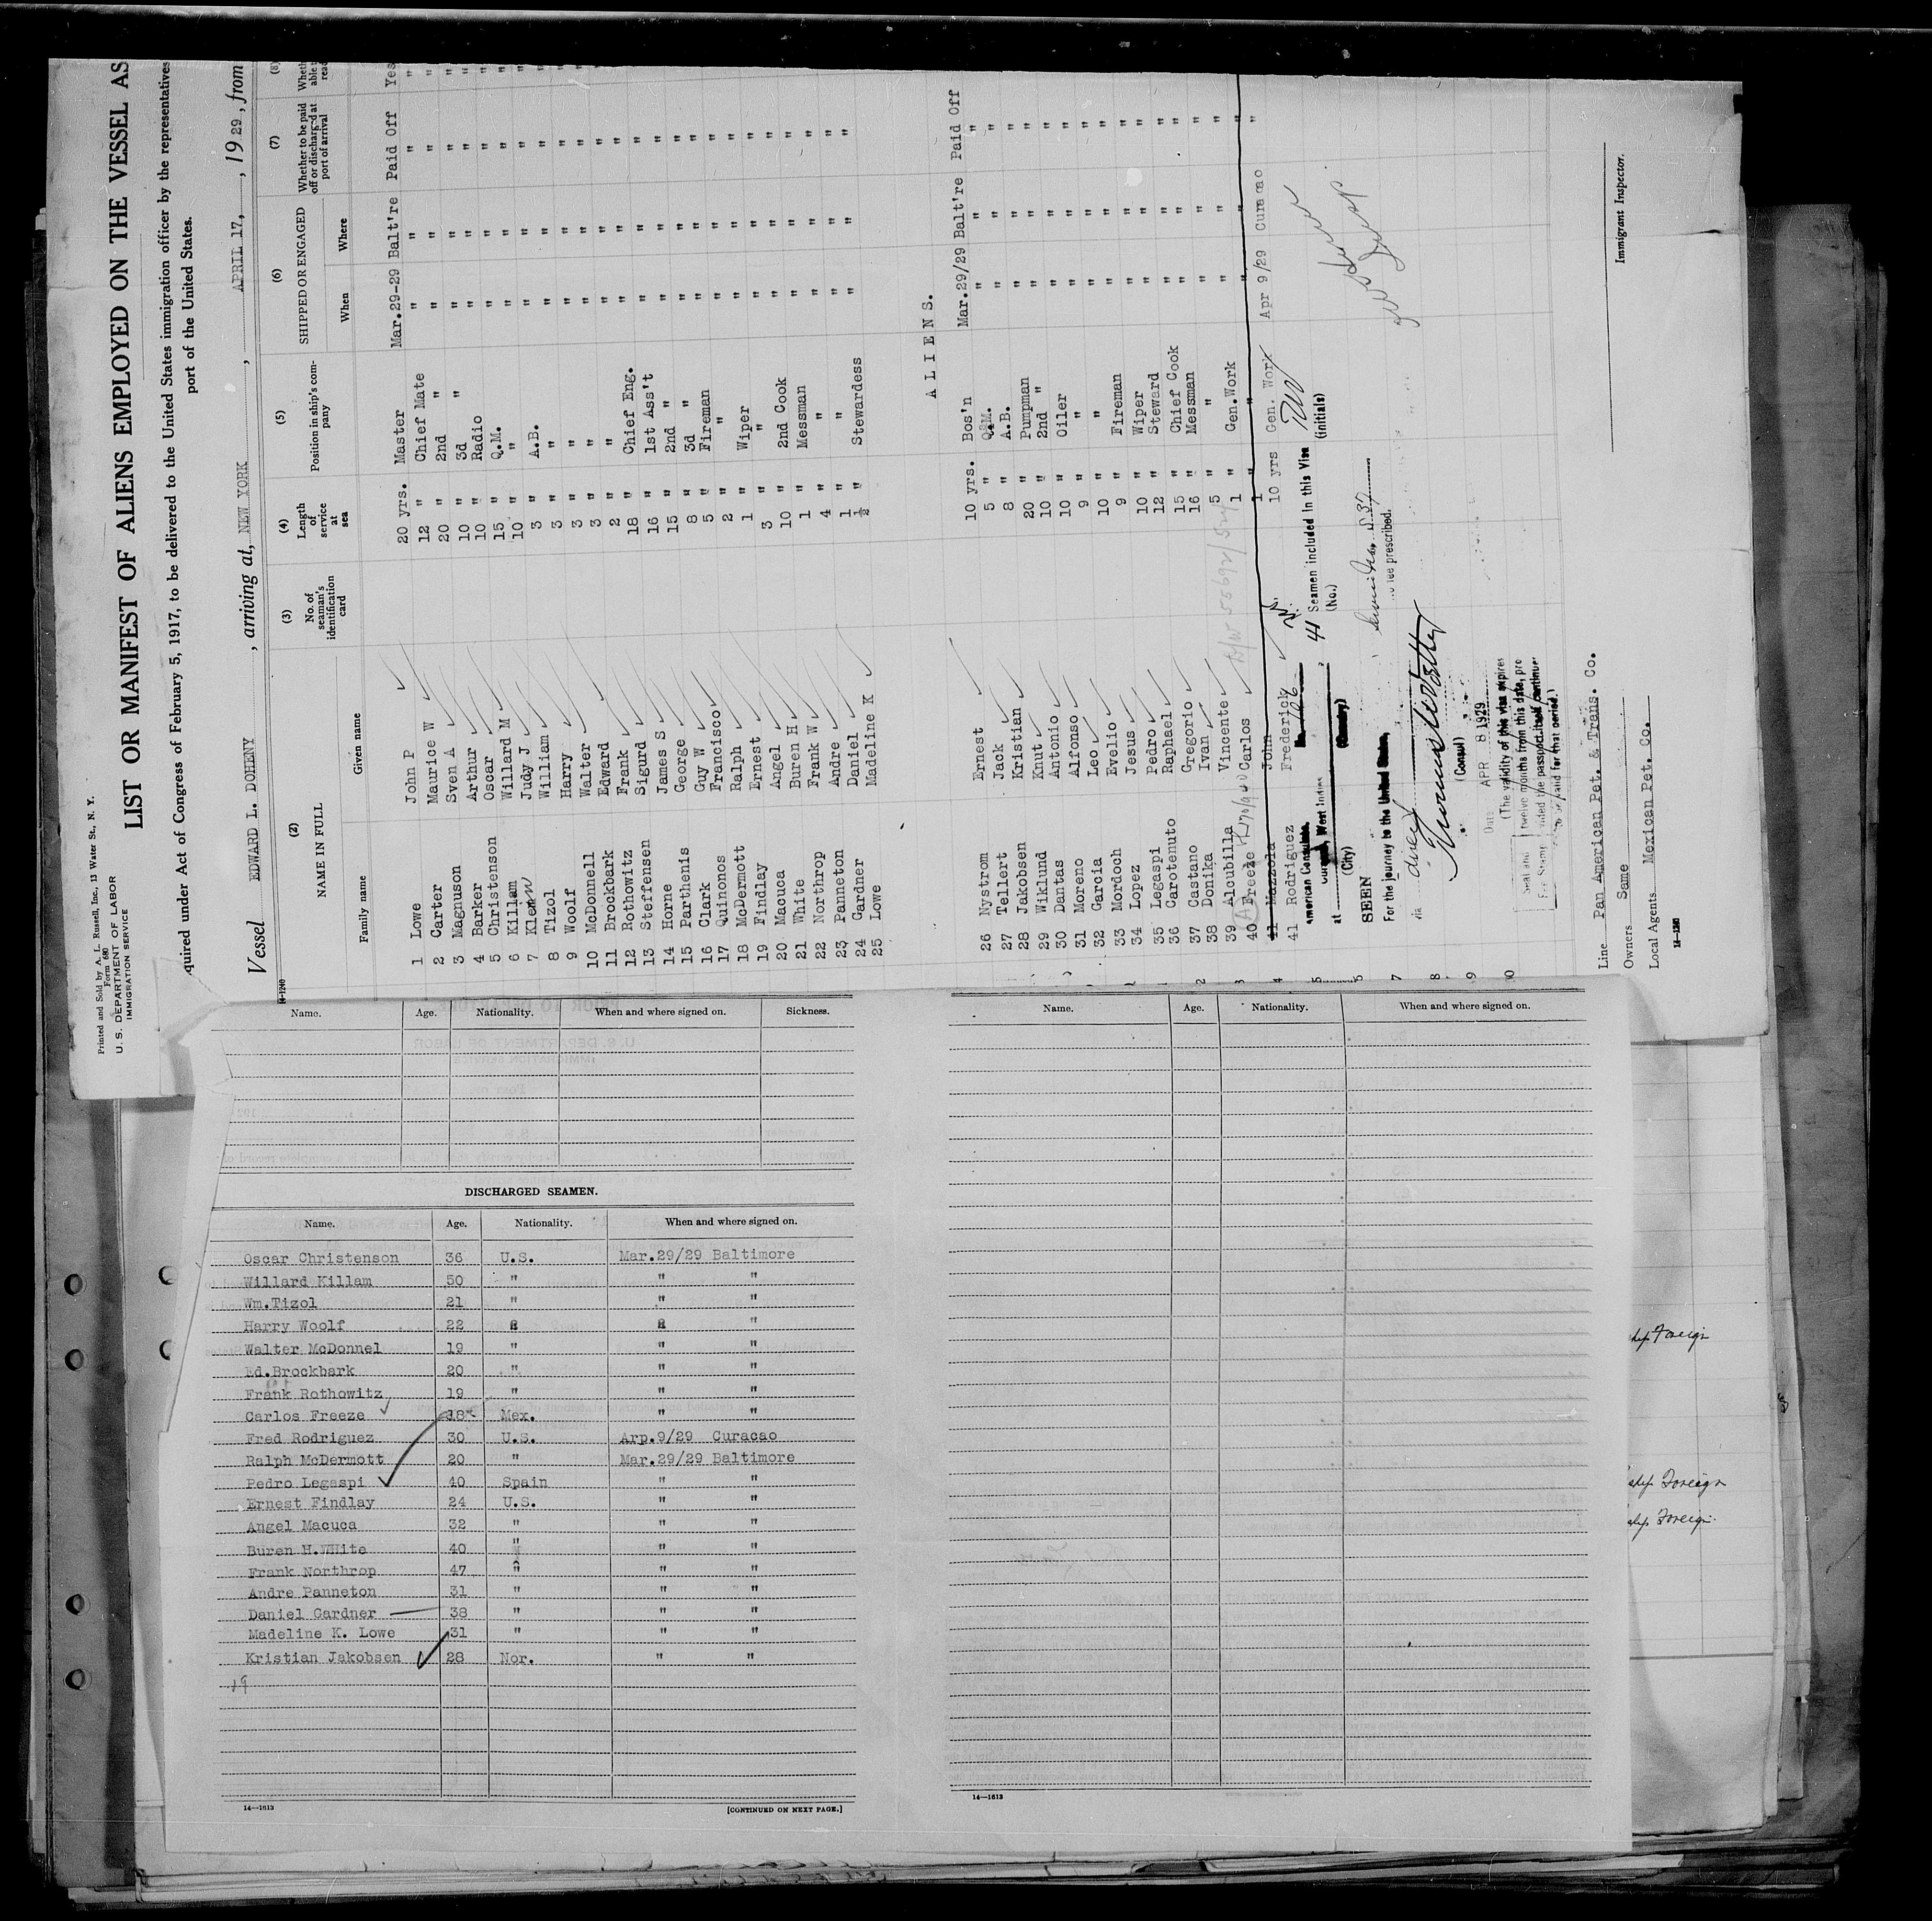 Printed and Sold by A. L. Russell, Inc., 13 Water St., N. Y.
Form 680
U. S. DEPARTMENT OF LABOR
IMMIGRATION SERVICE
LIST OR MANIFEST OF ALIENS EMPLOYED ON THE VESSEL AS
quired under Act of Congress of February 5, 1917, to be delivered to the United States immigration officer by the representatives
port of the United States.
Vessel EDWARD L. DOHENY , arriving at, NEW YORK , APRIL 17, , 1929, from
14-1240
(2) (3) (4) (5) (6) (7) (8)
NAME IN FULL No. of seaman's identification card Length of service at sea Position in ship's company SHIPPED OR ENGAGED Whether to be paid off or discharged at port of arrival
Family name Given name When Where
1 Lowe John P 20 yrs. Master Mar.29-29 Balt're Paid Off Yes
2 Carter Maurice W 12 " Chief Mate " " " "
3 Magnuson Sven A 20 " 2nd " " " " "
4 Barker Arthur 10 " 3d " " " " "
5 Christenson Oscar 10 " Radio " " " "
6 Killam Willard M 15 " Q.M. " " " "
7 Klemm Judy J 10 " " " " " "
8 Tizol William 3 " A.B. " " " "
9 Woolf Harry 3 " " " " "
10 McDonnell Walter 3 " " " " "
11 Brockbark Edward 3 " " " " "
12 Rothowitz Frank 2 " " " " "
13 Steffensen Sigurd 18 " Chief Eng. " " "
14 Horne James S 16 " 1st Ass't " " "
15 Parthenis George 15 " 2nd " " " "
16 Clark Guy W 8 " 3d " " " "
17 Quinonos Francisco 5 " Fireman " " "
18 McDermott Ralph 2 " " " " "
19 Findlay Ernest 1 " Wiper " " "
20 Macuca Angel 3 " " " " "
21 White Buren H 10 " 2nd Cook " " "
22 Northrop Frank W 1 " Messman " " "
23 Panneton Andre 4 " " " " "
24 Gardner Daniel 1 " " " " "
25 Lowe Madeline K ½ " Stewardess " " "
ALIENS.
26 Nystrom Ernest 10 yrs. Bos'n Mar.29/29 Balt're Paid Off
27 Tellert Jack 5 " Q.M. " " "
28 Jakobsen Kristian 8 " A.B. " " "
29 Wiklund Knut 20 " Pumpman " " "
30 Dantas Antonio 10 " 2nd " " " "
31 Moreno Alfonso 10 " Oiler " " "
32 Garcia Leo 9 " " " " "
33 Mordoch Evelio 10 " " " " "
34 Lopez Jesus 9 " Fireman " " "
35 Legaspi Pedro 10 " Wiper " " "
36 Carotenuto Raphael 12 " Steward " " "
37 Castano Gregorio 15 " Chief Cook " " "
38 Donika Ivan 16 " Messman " " "
39 Alcubilla Vincente 5 " " " " "
40 Freeze Carlos 1 " Gen.Work " " "
41 Mazzola John 1 " " " "
41 Rodriguez Frederick 10 yrs Gen. Work Apr 9/29 Curacao
American Consulate,
at Curacao, West Indies
(City) (Country)
41 Seamen included in this Visa
(No.) (initials)
SEEN
For the journey to the United States,
via direct
no fee prescribed.
(Consul)
Date APR 8 1929
(The validity of this visa expires
twelve months from this date, pro
vided the passport itself continues
to be valid for that period.)
Seal and
Fee Stamp
Line Pan American Pet. & Trans. Co.
Owners Same
Local Agents Mexican Pet. Co.
Immigrant Inspector.
14-1240
Name. Age. Nationality. When and where signed on. Sickness.
DISCHARGED SEAMEN.
Name. Age. Nationality. When and where signed on.
Oscar Christenson 36 U.S. Mar.29/29 Baltimore
Willard Killam 50 " " "
Wm.Tizol 21 " " "
Harry Woolf 22 " " "
Walter McDonnel 19 " " "
Ed.Brockbark 20 " " "
Frank Rothowitz 19 " " "
Carlos Freeze 18 Mex. " "
Fred Rodriguez 30 U.S. Arp.9/29 Curacao
Ralph McDermott 20 " Mar.29/29 Baltimore
Pedro Legaspi 40 Spain " "
Ernest Findlay 24 U.S. " "
Angel Macuca 32 " " "
Buren H.WHite 40 " " "
Frank Northrop 47 " " "
Andre Panneton 31 " " "
Daniel Gardner 38 " " "
Madeline K. Lowe 31 " " "
Kristian Jakobsen 28 Nor. " "
19
14—1613
[CONTINUED ON NEXT PAGE.]
Name. Age. Nationality. When and where signed on.
14—1613
Foreign
Foreign
Foreign